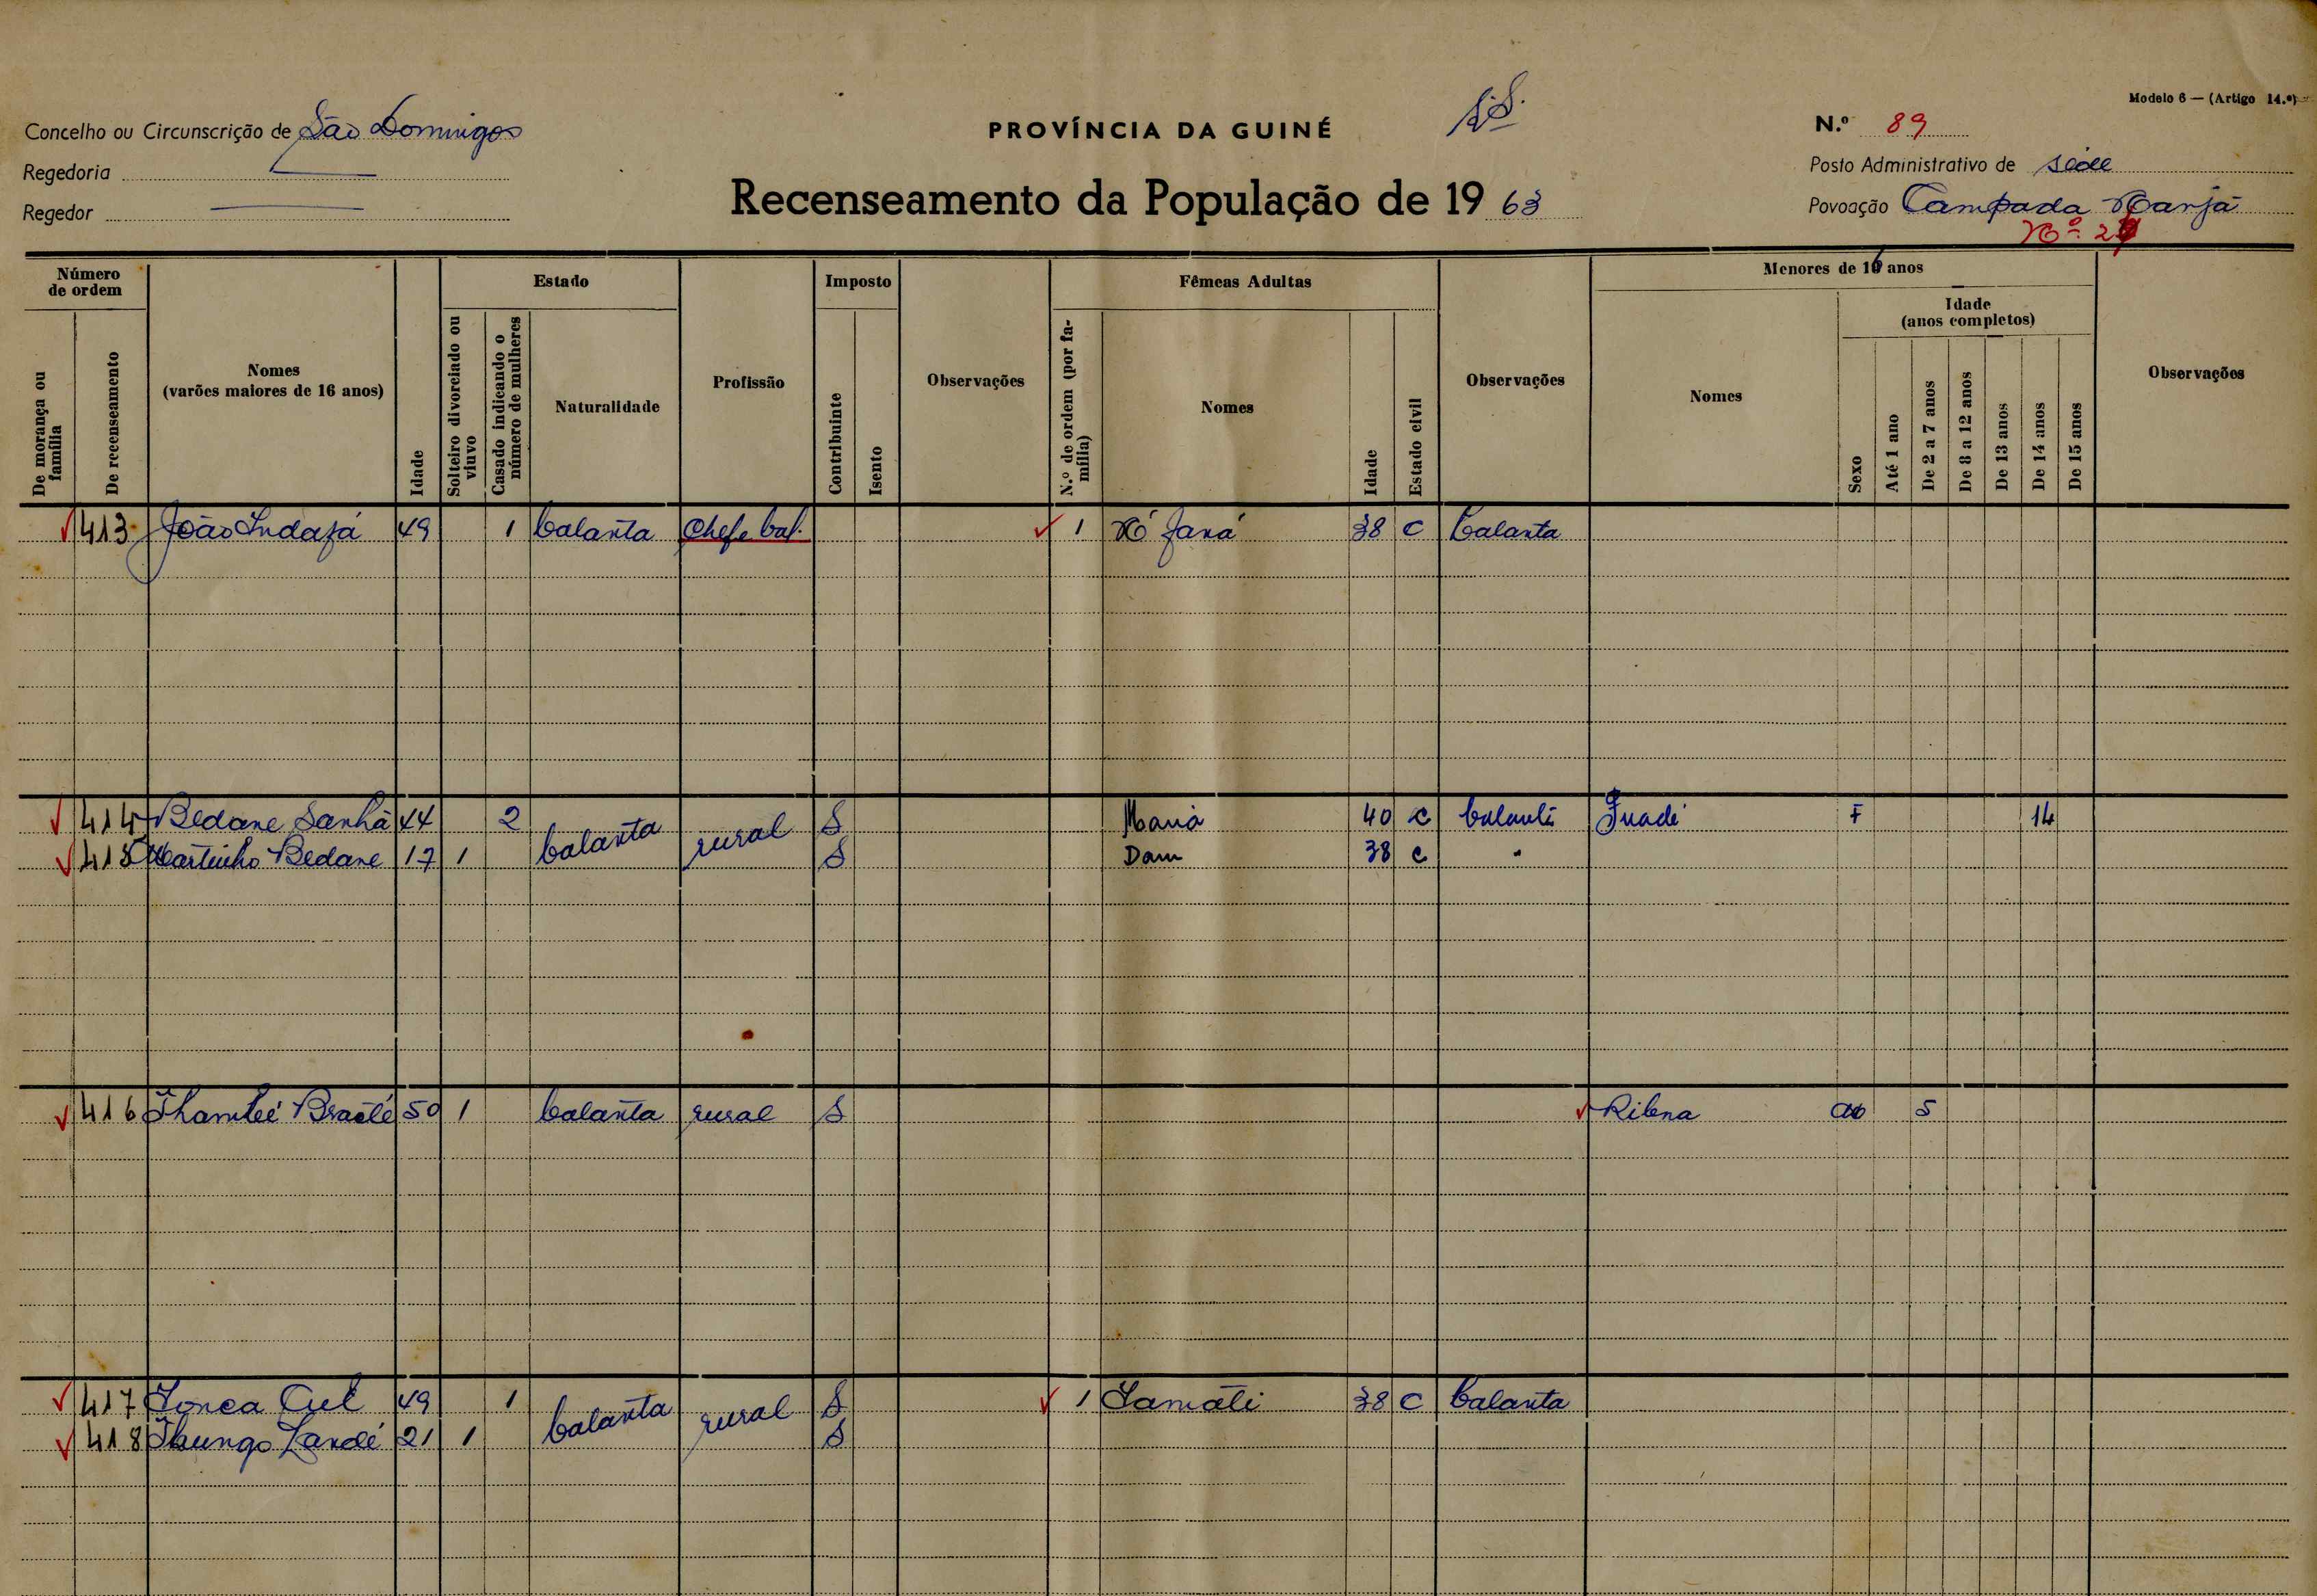 Modelo 6 — (Artigo 14.º)
Concelho ou Circunscrição de São Domingos
PROVÍNCIA DA GUINÉ
N.º 89
Regedoria
Posto Administrativo de Séde
Regedor
Recenseamento da População de 1963
Povoação Campada
Nº 2
Número de ordem
Estado
Imposto
Fêmeas Adultas
Menores de 16 anos
Idade
(anos completos)
De morança ou família
De recenseamento
Nomes
(varões maiores de 16 anos)
Idade
Solteiro divorciado ou viuvo
Casado indicando o número de mulheres
Naturalidade
Profissão
Contribuinte
Isento
Observações
N.º de ordem (por família)
Nomes
Idade
Estado civil
Observações
Nomes
Sexo
Até 1 ano
De 2 a 7 anos
De 8 a 12 anos
De 13 anos
De 14 anos
De 15 anos
Observações
413 João Indafá 49 1 balanta Chefe bal. 1 38 C balanta
414 Bedane Sanhá 44 2 balanta rural S 40 C balanta F 14
415 Martinho Bedane 17 1 S Dam 38 C "
416 50 1 balanta rural S Ribna 5
417 49 1 balanta rural S 1 Samáti 38 C balanta
418 21 1 S